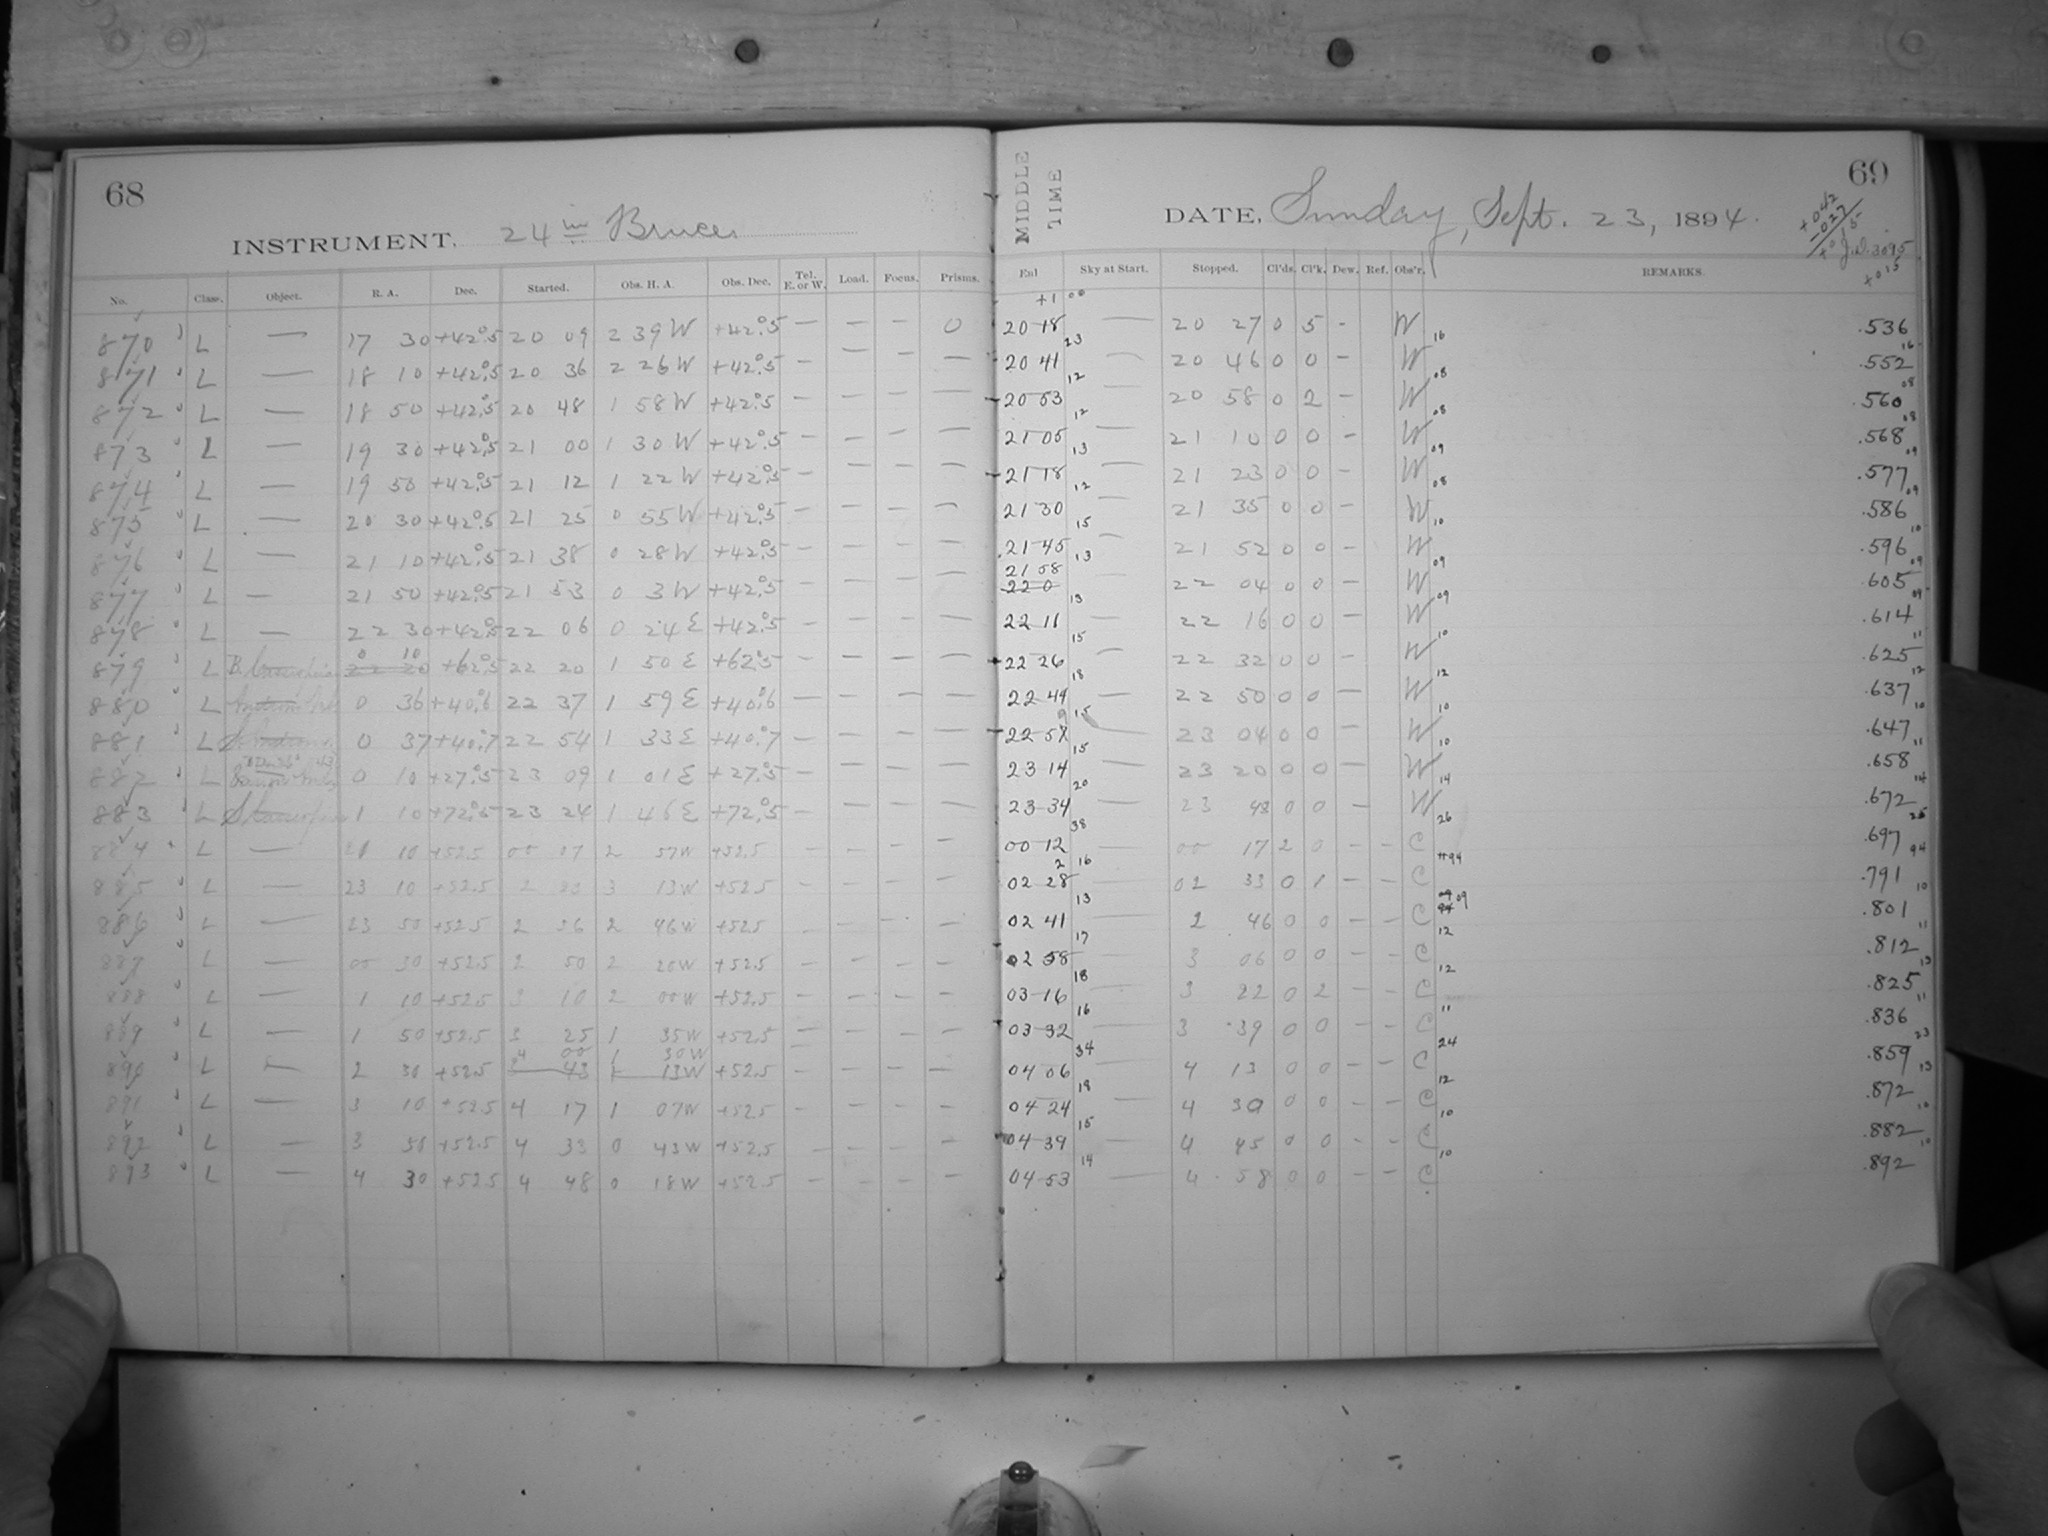 68
INSTRUMENT. 24 in Bruce
No. Class. Object. R. A. Dec. Started. Obs. H. A. Obs. Dec. Tel. E. or W. Load. Focus. Prisms.
870 L — 17 30 +42°.5 20 09 2 39 W +42°.5 — — — 0
871 L — 18 10 +42°.5 20 36 2 26 W +42°.5 — — — —
872 L — 18 50 +42°.5 20 48 1 58 W +42°.5 — — — —
873 L — 19 30 +42°.5 21 00 1 30 W +42°.5 — — — —
874 L — 19 50 +42°.5 21 12 1 22 W +42°.5 — — — —
875 L — 20 30 +42°.5 21 25 0 55 W +42°.5 — — — —
876 L — 21 10 +42°.5 21 38 0 28 W +42°.5 — — — —
877 L — 21 50 +42°.5 21 53 0 3 W +42°.5 — — — —
878 L — 22 30 +42°.5 22 06 0 24 E +42°.5 — — — —
879 L 0 10 +62°.5 22 20 1 50 E +62°.5 — — — —
880 L 0 36 +40°.6 22 37 1 59 E +40°.6 — — — —
881 L 0 37 +40°.7 22 54 1 33 E +40°.7 — — — —
882 L 0 10 +27°.5 23 09 1 01 E +27°.5 — — — —
883 L 1 10 +72°.5 23 24 1 46 E +72°.5 — — — —
884 L — 10 +52.5 00 07 2 57 W +52.5 — — — —
885 L — 23 10 +52.5 2 3 13 W +52.5 — — — —
886 L — 23 50 +52.5 2 36 2 46 W +52.5 — — — —
887 L — 00 30 +52.5 2 50 2 20 W +52.5 — — — —
888 L — 1 10 +52.5 3 10 2 00 W +52.5 — — — —
889 L — 1 50 +52.5 3 25 1 35 W +52.5 — — — —
4 00 1 30 W
890 L — 2 30 +52.5 3 43 1 13 W +52.5 — — — —
891 L — 3 10 +52.5 4 17 1 07 W +52.5 — — — —
892 L — 3 50 +52.5 4 33 0 43 W +52.5 — — — —
893 L — 4 30 +52.5 4 48 0 18 W +52.5 — — — —
69
MIDDLE
TIME
DATE, Sunday, Sept. 23, 1894.
+042
-027
J.D. 3095
+015
Sky at Start. Stopped. Cl'ds. Cl'k. Dew. Ref. Obs'r. REMARKS.
+1 00
20 18 — 20 27 0 5 - W .536
23 16 16
20 41 — 20 46 0 0 - W .552
12 08 08
20 53 — 20 58 0 2 - W .560
12 08 08
21 05 — 21 10 0 0 - W .568
13 09 09
21 18 — 21 23 0 0 - W .577
12 08 09
21 30 — 21 35 0 0 - W .586
15 10 10
21 45 — 21 52 0 0 - W .596
13 09 09
21 58
22 0 — 22 04 0 0 - W .605
13 09 09
22 11 — 22 16 0 0 - W .614
15 10 11
22 26 — 22 32 0 0 - W .625
18 12 12
22 44 — 22 50 0 0 - W .637
15 10 10
22 59 23 04 0 0 - W .647
15 10 11
23 14 — 23 20 0 0 - W .658
20 14 14
23 34 — 23 43 0 0 - W .672
38 26 25
00 12 — 00 17 2 0 - - C .697
2 16 94 94
02 28 — 02 33 0 1 - - C .791
13 09 10
02 41 — 2 46 0 0 - - C .801
17 12 11
02 58 — 3 06 0 0 - - C .812
18 12 13
03 16 — 3 22 0 2 - - C .825
16 11 11
03 32 — 3 39 0 0 - - C .836
34 24 23
04 06 — 4 13 0 0 - - C .859
18 12 13
04 24 — 4 30 0 0 - - C .872
15 10 10
04 39 — 4 45 0 0 - - C .882
14 10 10
04 53 — 4 58 0 0 - - C .892